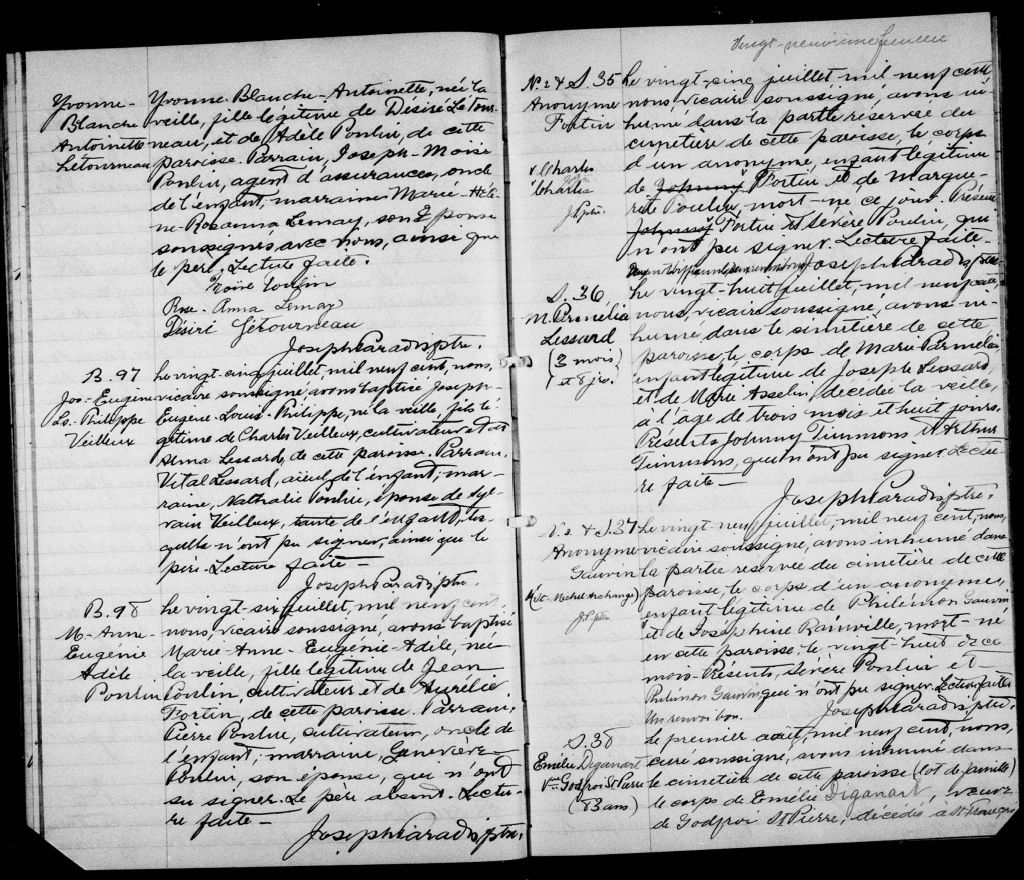 Yvonne-
Blanche
Antoinette
Létourneau
Yvonne-Blanche-Antoinette, née la
veille, fille légitime de Désiré Létour
neau, et de Adèle Poulin, de cette
paroisse. Parrain, Joseph-Moïse
Poulin, agent d'assurances, oncle
de l'enfant, marraine Marie-Hélè-
ne-Rosanna Lemay, son épouse
soussignés avec nous, ainsi que
le père. Lecture faite.
Moïse Poulin
Rose-Anna Lemay
Désiré Létourneau
Joseph Paradis, ptre.
B. 97
Jos.-Eugène
Ls.-Philippe
Veilleux
Le vingt-cinq juillet mil neuf cent, nous,
vicaire soussigné, avons baptisé Joseph-
Eugène-Louis-Philippe, né la veille, fils lé-
gitime de Charles Veilleux, cultivateur et de
Alma Lessard, de cette paroisse. Parrain,
Vital Lessard, aïeul de l'enfant, mar-
raine, Nathalie Poulin, épouse de Syl-
vain Veilleux, tante de l'enfant, les-
quels n'ont pu signer, ainsi que le
père. Lecture faite—
Joseph Paradis, ptre.
B. 98
M.-Anne-
Eugénie
Adèle
Poulin
Le vingt-six juillet, mil neuf cent,
nous, vicaire soussigné, avons baptisé
Marie-Anne-Eugénie-Adèle, née
la veille, fille légitime de Jean
Poulin, cultivateur et de Aurélie
Fortin, de cette paroisse. Parrain,
Pierre Poulin, cultivateur, oncle de
l'enfant; marraine, Geneviève
Poulin, son épouse, qui n'ont
su signer. Le père absent. Lectu-
re faite—
Joseph Paradis, ptre.
Vingt-neuvième feuillet
N. & S. 35
Anonyme
Fortin
Charles
Charles
J.P. ptre
Le vingt-cinq juillet mil neuf cent
nous, vicaire soussigné, avons in-
humé dans la partie réservée du
cimetière de cette paroisse, le corps
d'un anonyme, enfant légitime
de Johnny Fortin et de Margue-
rite Poulin, mort-né ce jour. Présents
Johnny Fortin et Sévère Poulin, qui
n'ont pu signer. Lecture faite—
Joseph Paradis, ptre
S. 36
M. Parmélia
Lessard
(3 mois)
(et 8 jrs.)
Le vingt-huit juillet, mil neuf cent,
nous, vicaire soussigné, avons in-
humé dans le cimetière de cette
paroisse, le corps de Marie Parmélia,
enfant légitime de Joseph Lessard,
et de Marie Asselin, décédée la veille,
à l'âge de trois mois et huit jours.
Présents Johnny Timmons et Arthur
Timmons, qui n'ont pu signer. Lectu-
re faite—
Joseph Paradis, ptre.
N. & S. 37
Anonyme
Gauvin
(St-Michel Archange)
Le vingt-neuf juillet, mil neuf cent, nous,
vicaire soussigné, avons inhumé dans
la partie réservée du cimetière de cette
paroisse, le corps d'un anonyme,
enfant légitime de Philémon Gauvin
et de Joséphine Rainville, mort-né
en cette paroisse, le vingt-huit de ce
mois. Présents, Sévère Poulin et
Philémon Gauvin qui n'ont pu signer. Lecture faite.
Un renvoi bon.
Joseph Paradis, ptre.
S. 38
Emélie Diganart
Vve Godfroi St Pierre
(83 ans)
Le premier août, mil neuf cent, nous,
curé soussigné, avons inhumé dans
le cimetière de cette paroisse (lot de famille)
le corps de Emélie Diganart, veuve
de Godfroi St Pierre, décédée à St François